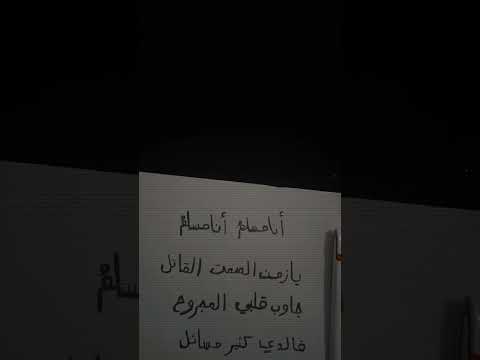 أنا مسلم أنا مسلم
يا زمن الصمت القاتل
جاوب قلبي المجروح
كثير مسائل